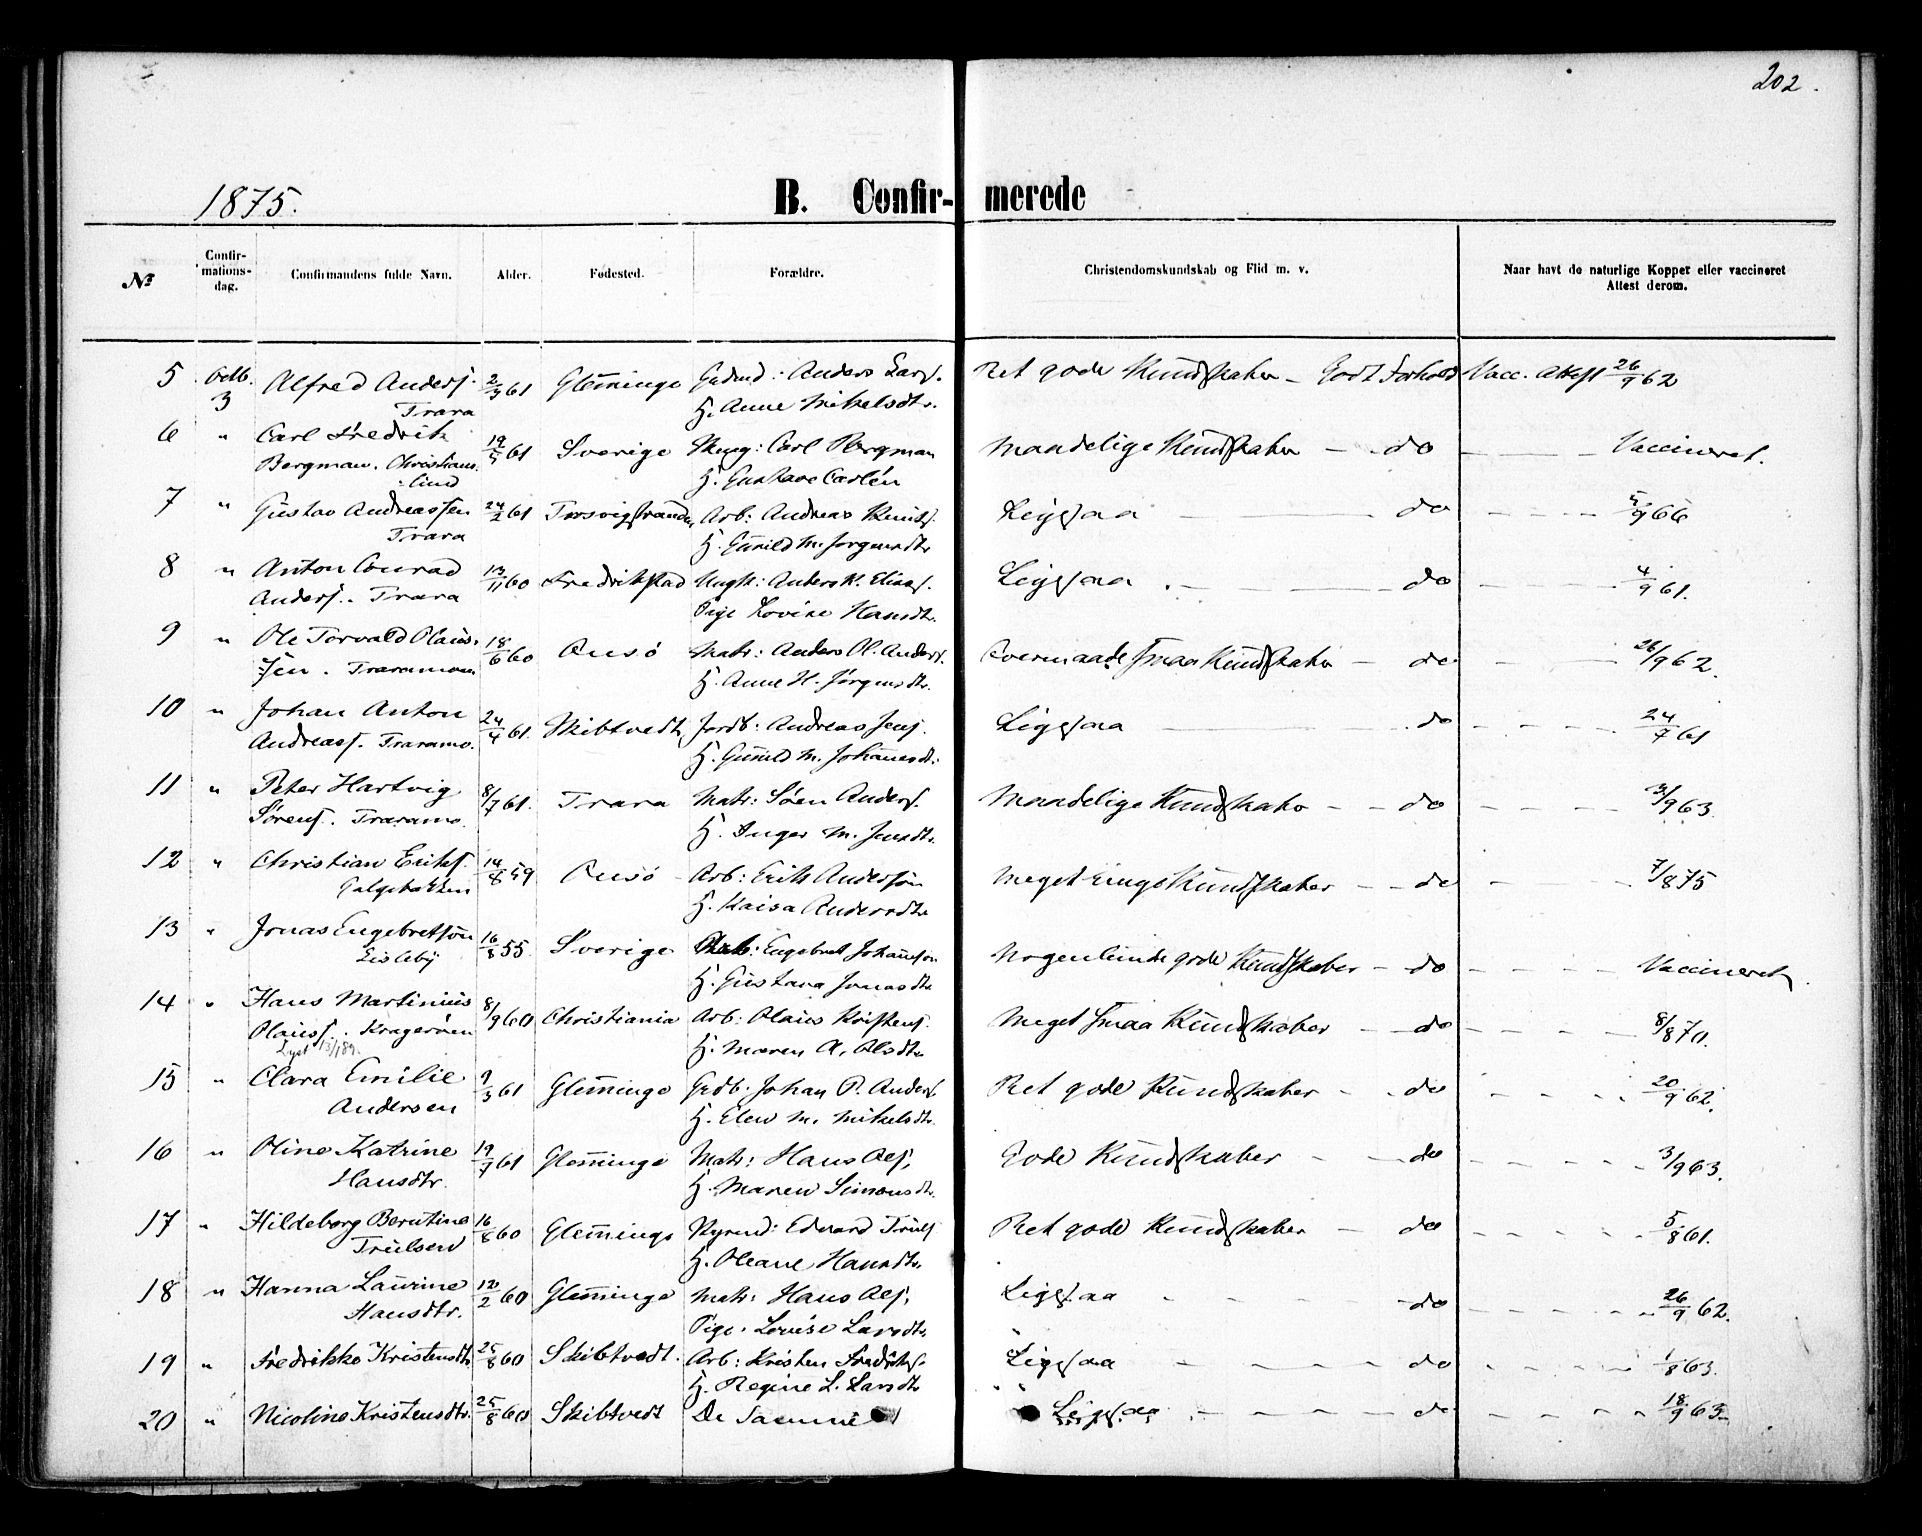 202.
1875.
B. Confir- merede
№ Confir-mations-dag. Confirmandens fulde Navn. Alder. Fødested. Forældre. Christendomskundskab og Flid m. v. Naar havt de naturlige Kopper eller vaccineret Attest derom.
5 Octb. 3 Alfred Anders. 2/3 61 Glemminge Gadmd: Anders Lars. Ret gode Kundskaber – Godt Forhold Vacc. Attest 26/9 62
Trara H. Anne Mikelsdtr.
6 " Carl Fredrik 19/5 61 Sverige Carl Bergman Maadelige Kundskaber – do – Vaccineret.
Bergman. Christians- H. Gustave Carlén
lund
7 " Gustav Andreassen 24/2 61 Torsvigstranden Arb: Andreas Knuds. Ligesaa – do – 5/9 66
Trara H. Gunild M. Jørgensdtr.
8 " Anton Conrad 13/11 60 Fredrikstad Ungk: Anders K. Elias. Ligesaa – do – 4/9 61.
Anders. Trara Pige Lovise Hansdtr.
9 " Ole Torvald Olaus- 18/6 60 Onsö Matr: Anders Ol. Anders. Overmaade smaa Kundskaber – do – 26/9 62.
sen. Traramoen H. Anne H. Jörgensdtr.
10 " Johan Anton 24/4 61. Skibtvedt Jordb: Andreas Jens. Ligesaa – do – 24/7 61
Andreass. Traramo. H. Gunild M. Johannesdtr.
11 " Peter Hartvig 8/7 61. Trara Matr: Sören Anders. Maadelige Kundskaber – do – 3/9 63.
Sörens. Traramo. H. Inger M. Jensdtr.
12 " Christian Eriks. 14/8 59 Onsö Arb: Erik Andersön Meget ringe Kundskaber – do – 7/8 75
Galgebakken H. Kaisa Andersdtr
13 " Jonas Engebretsön 16/8 55 Sverige Arb: Engebret Johannsön Nogenlunde gode Kundskaber – do – Vaccineret
Lisleby H. Gustava Jonasdtr.
14 " Hans Martinius 8/9 60 Christiania Arb: Olaus Kristens. Meget smaa Kundskaber – do – 8/8 70.
Olauss. Kragerøen H. Maren A. Olsdtr.
15 " Clara Emilie 9/3 61 Glemminge Grdb. Johan P. Anders. Ret gode Kundskaber – do – 20/9 62.
Andersen H. Elen M. Mikelsdtr.
16 " Oline Katrine 19/7 61 Glemminge Matr: Hans Ols. Gode Kundskaber – do – 3/9 63.
Hansdtr. H. Maren Simonsdtr.
17 " Hildeborg Berntine 16/8 60 Glemminge Edvard Truls. Ret gode Kundskaber – do – 5/8 61.
Trulsen H. Oleane Hansdtr.
18 " Hanna Laurine 12/2 60 Glemminge Matr: Hans Ols. Ligesaa – do – 26/9 62.
Hansdtr. Pige. Lovise Larsdtr.
19 " Fredrikke Kristensdtr 25/8 60 Skibtvedt. Arb: Kristen Fredriks. Ligesaa – do – 1/8 63.
H. Regine L. Larsdtr
20 " Nicoline Kristensdtr. 25/8 60 Skibtvedt De Samme Ligesaa – do – 18/9 63.